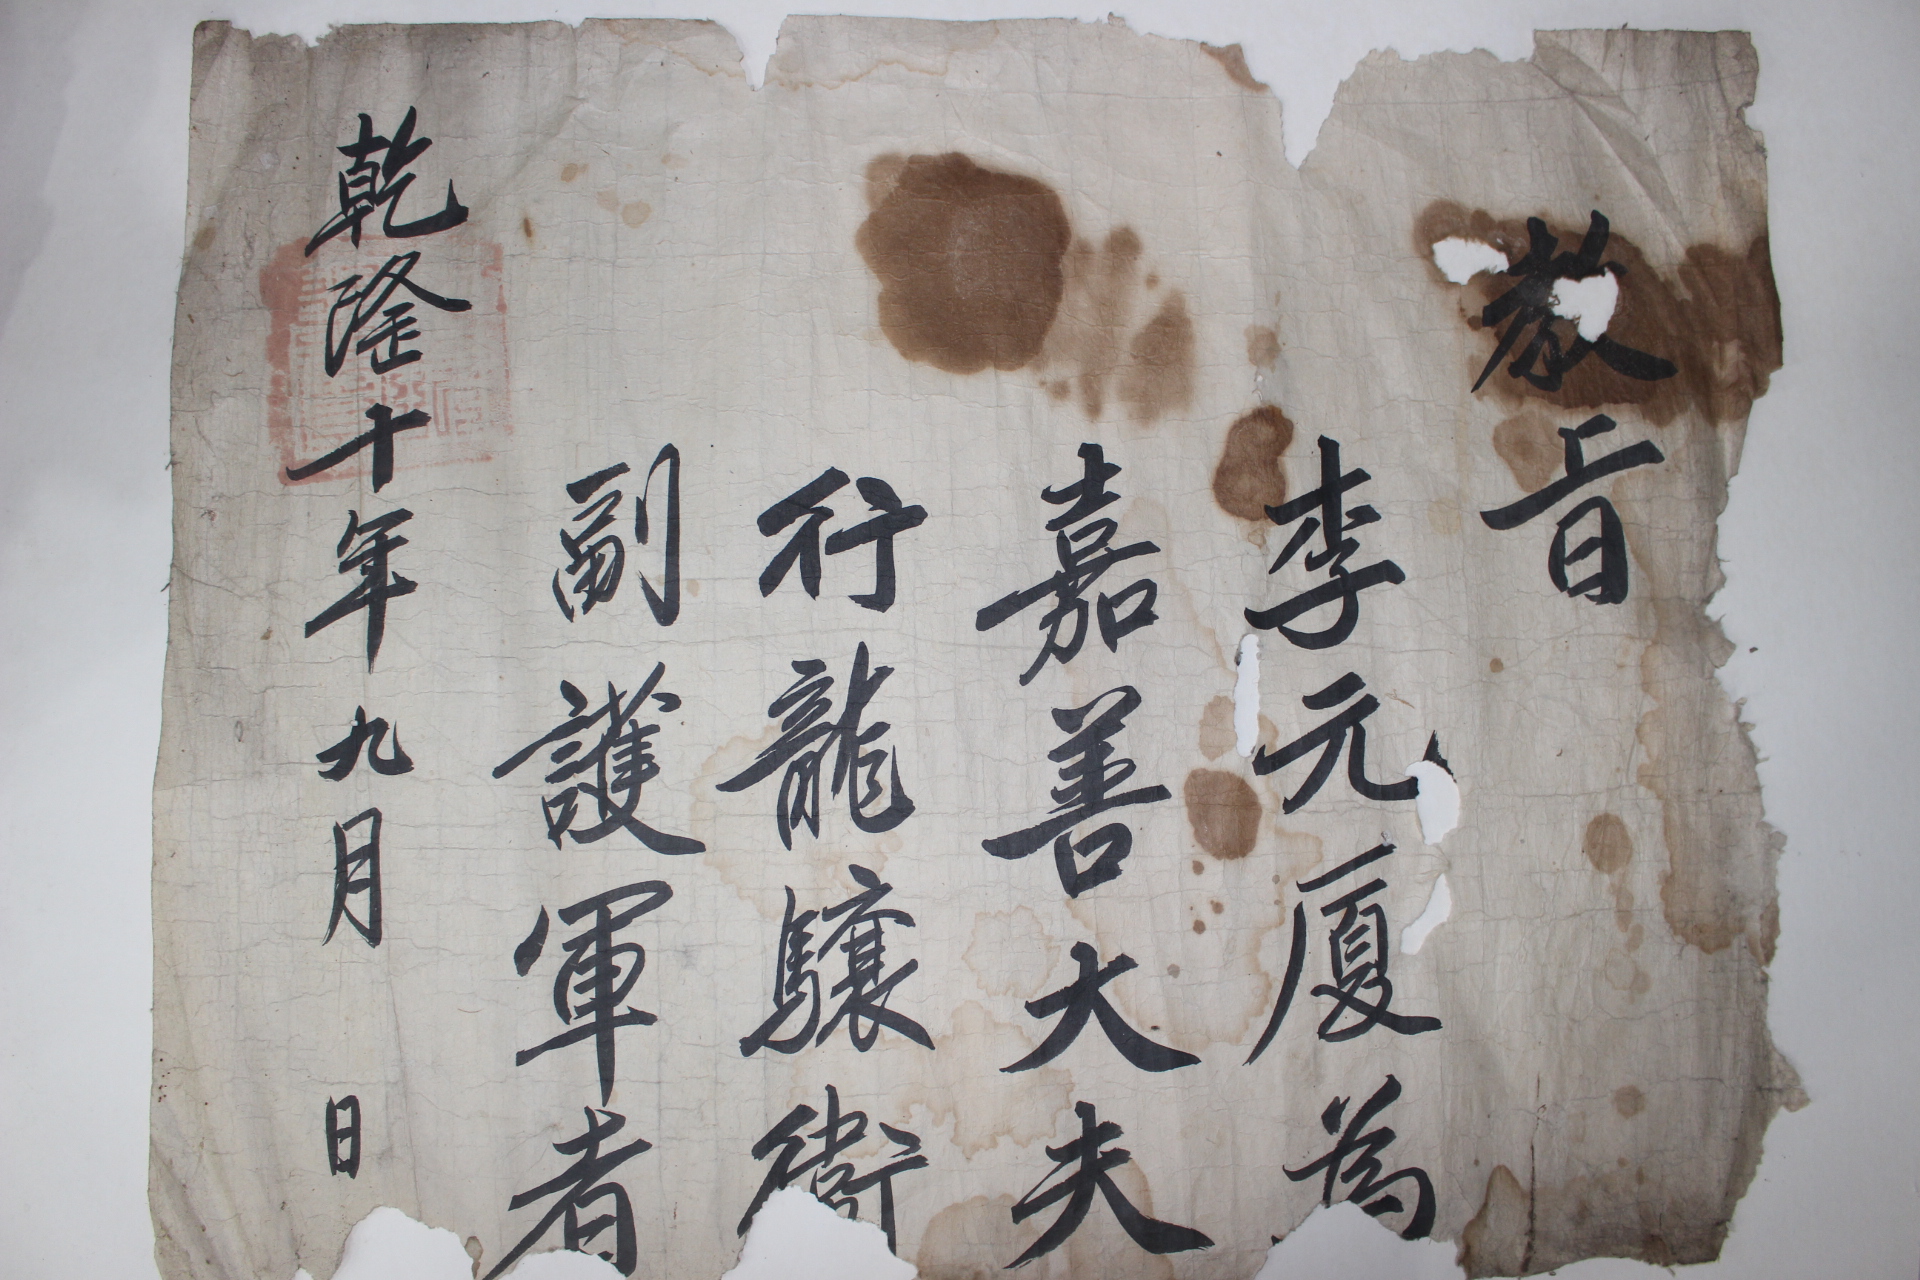 教旨
李元厦為
嘉善大夫
行龍驤衛
副護軍者
乾隆十年九月 日